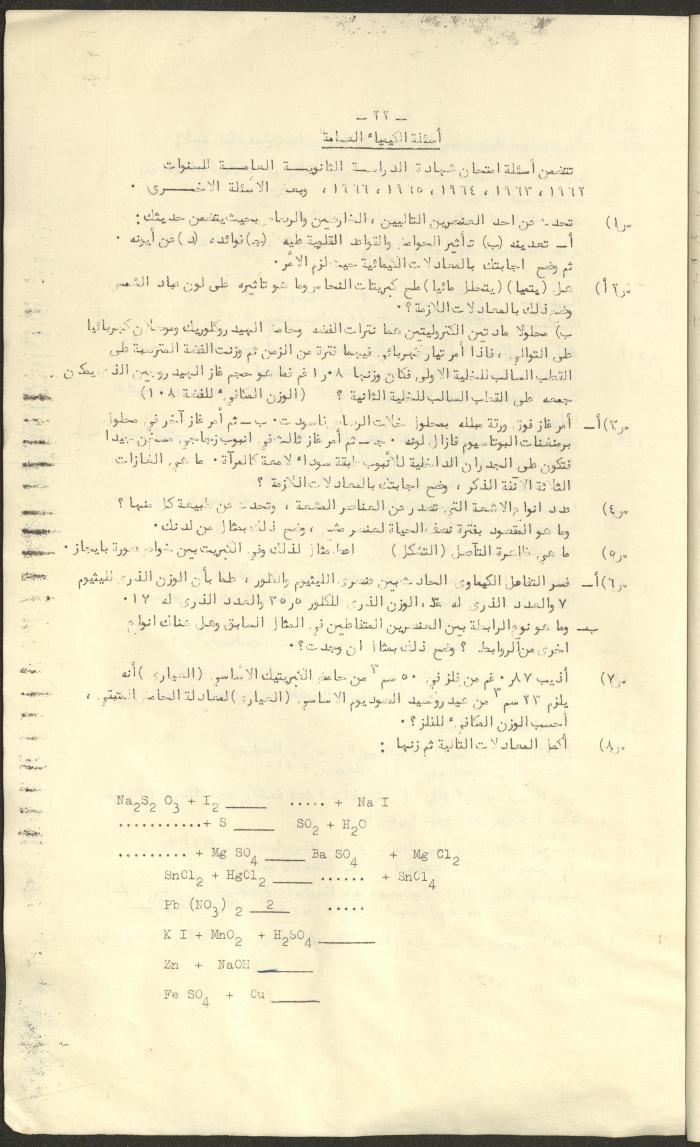 - ٢٢ -
أسئلة الكيمياء العامة
تتضمن أسئلة امتحان شهادة الدراسة الثانوية العامة للسنوات
١٩٦٢ ، ١٩٦٣ ، ١٩٦٤ ، ١٩٦٥ ، ١٩٦٦ ، وبعض الاسئلة الاخرى .
س١) تحدث عن احد العنصرين التاليين ، الخارصين والرصاص بحيث يتضمن حديثك :
أ - تعدينه (ب) تأثير الحوامض والقواعد القلوية عليه (جـ) فوائده (د) عن أيونه .
ثم وضح اجابتك بالمعادلات الكيمائية حيث لزم الأمر .
س٢أ) هل (يتميأ) (يتحلل مائيا) ملح كبريتات النحاس وما هو تأثيره على لون عباد الشمس
وضح ذلك بالمعادلات اللازمة ؟ .
ب) محلولا مادتين الكتروليتين هما نترات الفضه وحامض الهيدروكلوريك وموصلان كهربائيا
على التوالي ، فاذا أمر تيار كهربائي فيهما فترة من الزمن ثم وزنت الفضة المترسبة على
القطب السالب للخلية الاولى فكان وزنها ١٫٠٨ غم فما هو حجم غاز الهيدروجين الذي يمكن
جمعه على القطب السالب للخلية الثانية ؟ (الوزن المكافيء للفضة ١٠٨)
س٣)أ - أمر غاز فوق ورقة مبلله بمحلول خلات الرصاص فاسودت . ب - ثم أمر غاز آخر في محلول
برمنغنات البوتاسيوم فازال لونه . جـ - ثم أمر غاز ثالث في انبوب زجاجي مسخن جيدا
فتكون على الجدران الداخلية للأنبوب طبقة سوداء لامعة كالمرآة . ما هي الغازات
الثلاثة الآنفة الذكر ، وضح اجابتك بالمعادلات اللازمة ؟
س٤) عدد انواع الاشعة التي تصدر عن العناصر المشعة ، وتحدث عن طبيعة كل منها ؟
وما هو المقصود بفترة نصف الحياة لعنصر مشع ، وضح ذلك بمثال من لدنك .
س٥) ما هي ظاهرة التآصل (التشكل) اعط مثال لذلك وفي الكبريت بين خواص صورة بايجاز .
س٦)أ - فسر التفاعل الكيماوى الحادث بين عنصرى الليثيوم والكلور ، علما بأن الوزن الذرى لليثيوم
٧ والعدد الذرى له ٣ ، الوزن الذرى للكلور ٣٥٫٥ والعدد الذرى له ١٧ .
ب - وما هو نوع الرابطة بين العنصرين المتفاعلين في المثال السابق وهل هناك انواع
اخرى من الروابط ؟ وضح ذلك بمثال ان وجدت ؟ .
س٧) أذيب ٠٫٨٧ غم من فلز في ٥٠ سم٣ من حامض الكبريتيك الاساسي (العيارى) أنه
يلزم ٢٣ سم٣ من هيدروكسيد الصوديوم الاساسي (العيارى) لمعادلة الحامض المتبقي ،
أحسب الوزن المكافيء للفلز ؟ .
س٨) أكمل المعادلات التالية ثم زنها :
Na2S2 O3 + I2 _____ ..... + Na I
...........+ S _____ SO2 + H2O
......... + Mg SO4 _____ Ba SO4 + Mg Cl2
SnCl2 + HgCl2 _____ ...... + SnCl4
Pb (NO3) 2 __2__ .....
K I + MnO2 + H2SO4 _______
Zn + NaOH _______
Fe SO4 + Cu ______